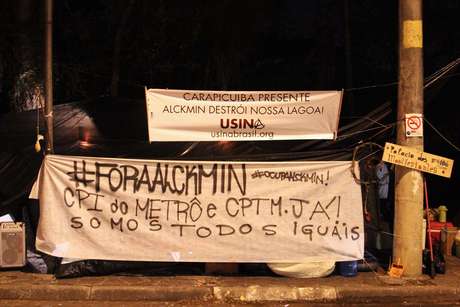 CARAPICUIBA PRESENTE
ALCKMIN DESTRÓI NOSSA LAGOA!
USINA
usinabrasil.org
#FORAALCKMIN
#OCUPAALCKMIN!
CPI do METRÔ e CPTM. JA'!
SOMOS TODOS IGUAIS
Palacio dos
Manifestantes